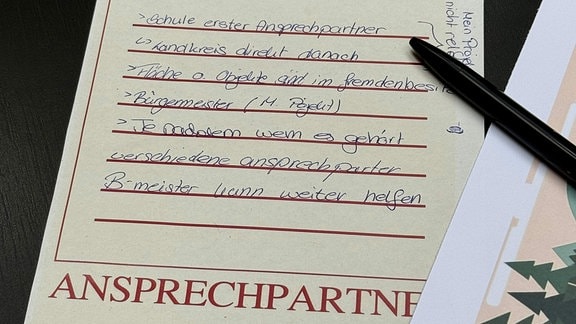 > Schule erster Ansprechpartner
↳ Landkreis direkt danach
> Fläche o. Objekte sind im fremdenbesitz
> Bürgermeister (M. Projekt)
> Je nachdem wem es gehört
verschiedene ansprechparter
B-meister kann weiter helfen
Mein Proje
nicht rel
ANSPRECHPARTNE